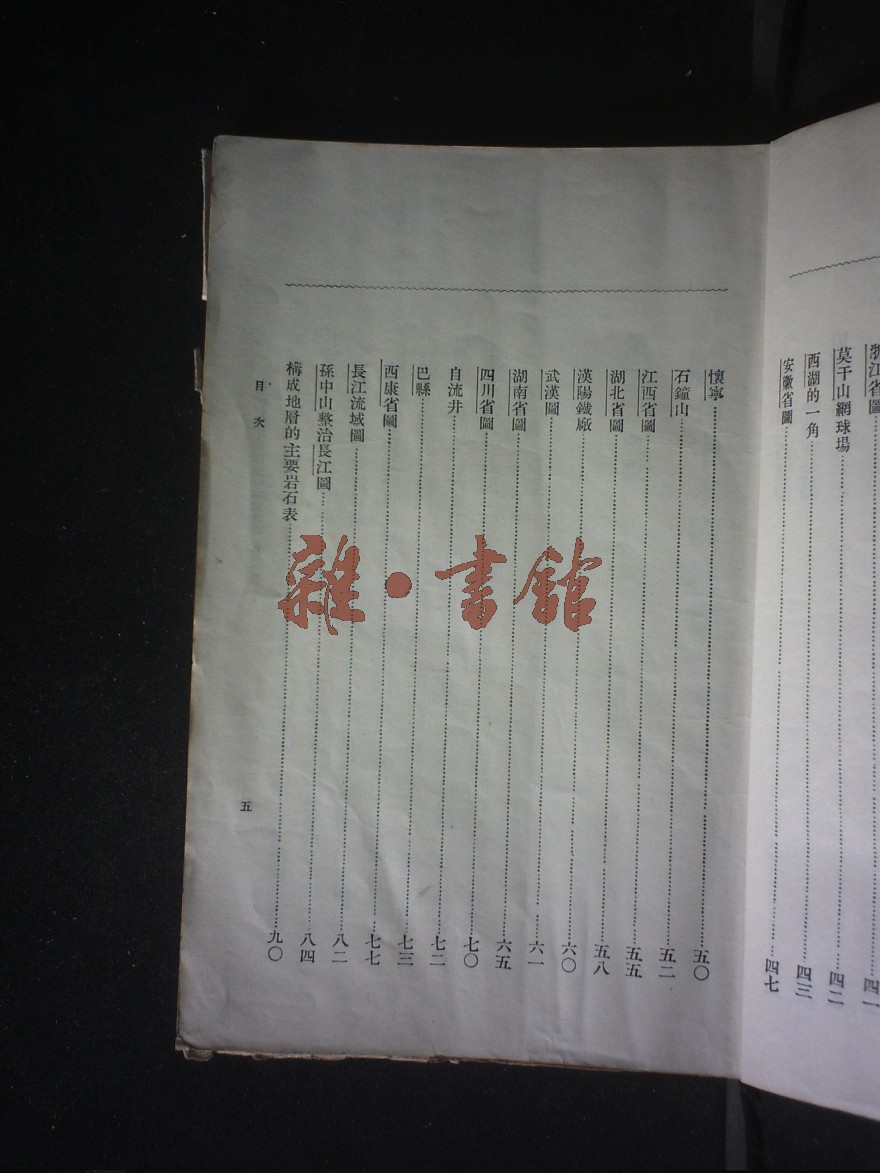 浙江省圖……四一
莫干山網球場……四二
西湖的一角……四三
安徽省圖……四七
懷寧……五〇
石鐘山……五二
江西省圖……五五
湖北省圖……五八
漢陽鐵廠……六〇
武漢圖……六一
湖南省圖……六五
四川省圖……七〇
自流井……七二
巴縣……七三
西康省圖……七七
長江流域圖……八二
孫中山整治長江圖……八四
構成地層的主要岩石表……九〇
目次
五
雜·書館